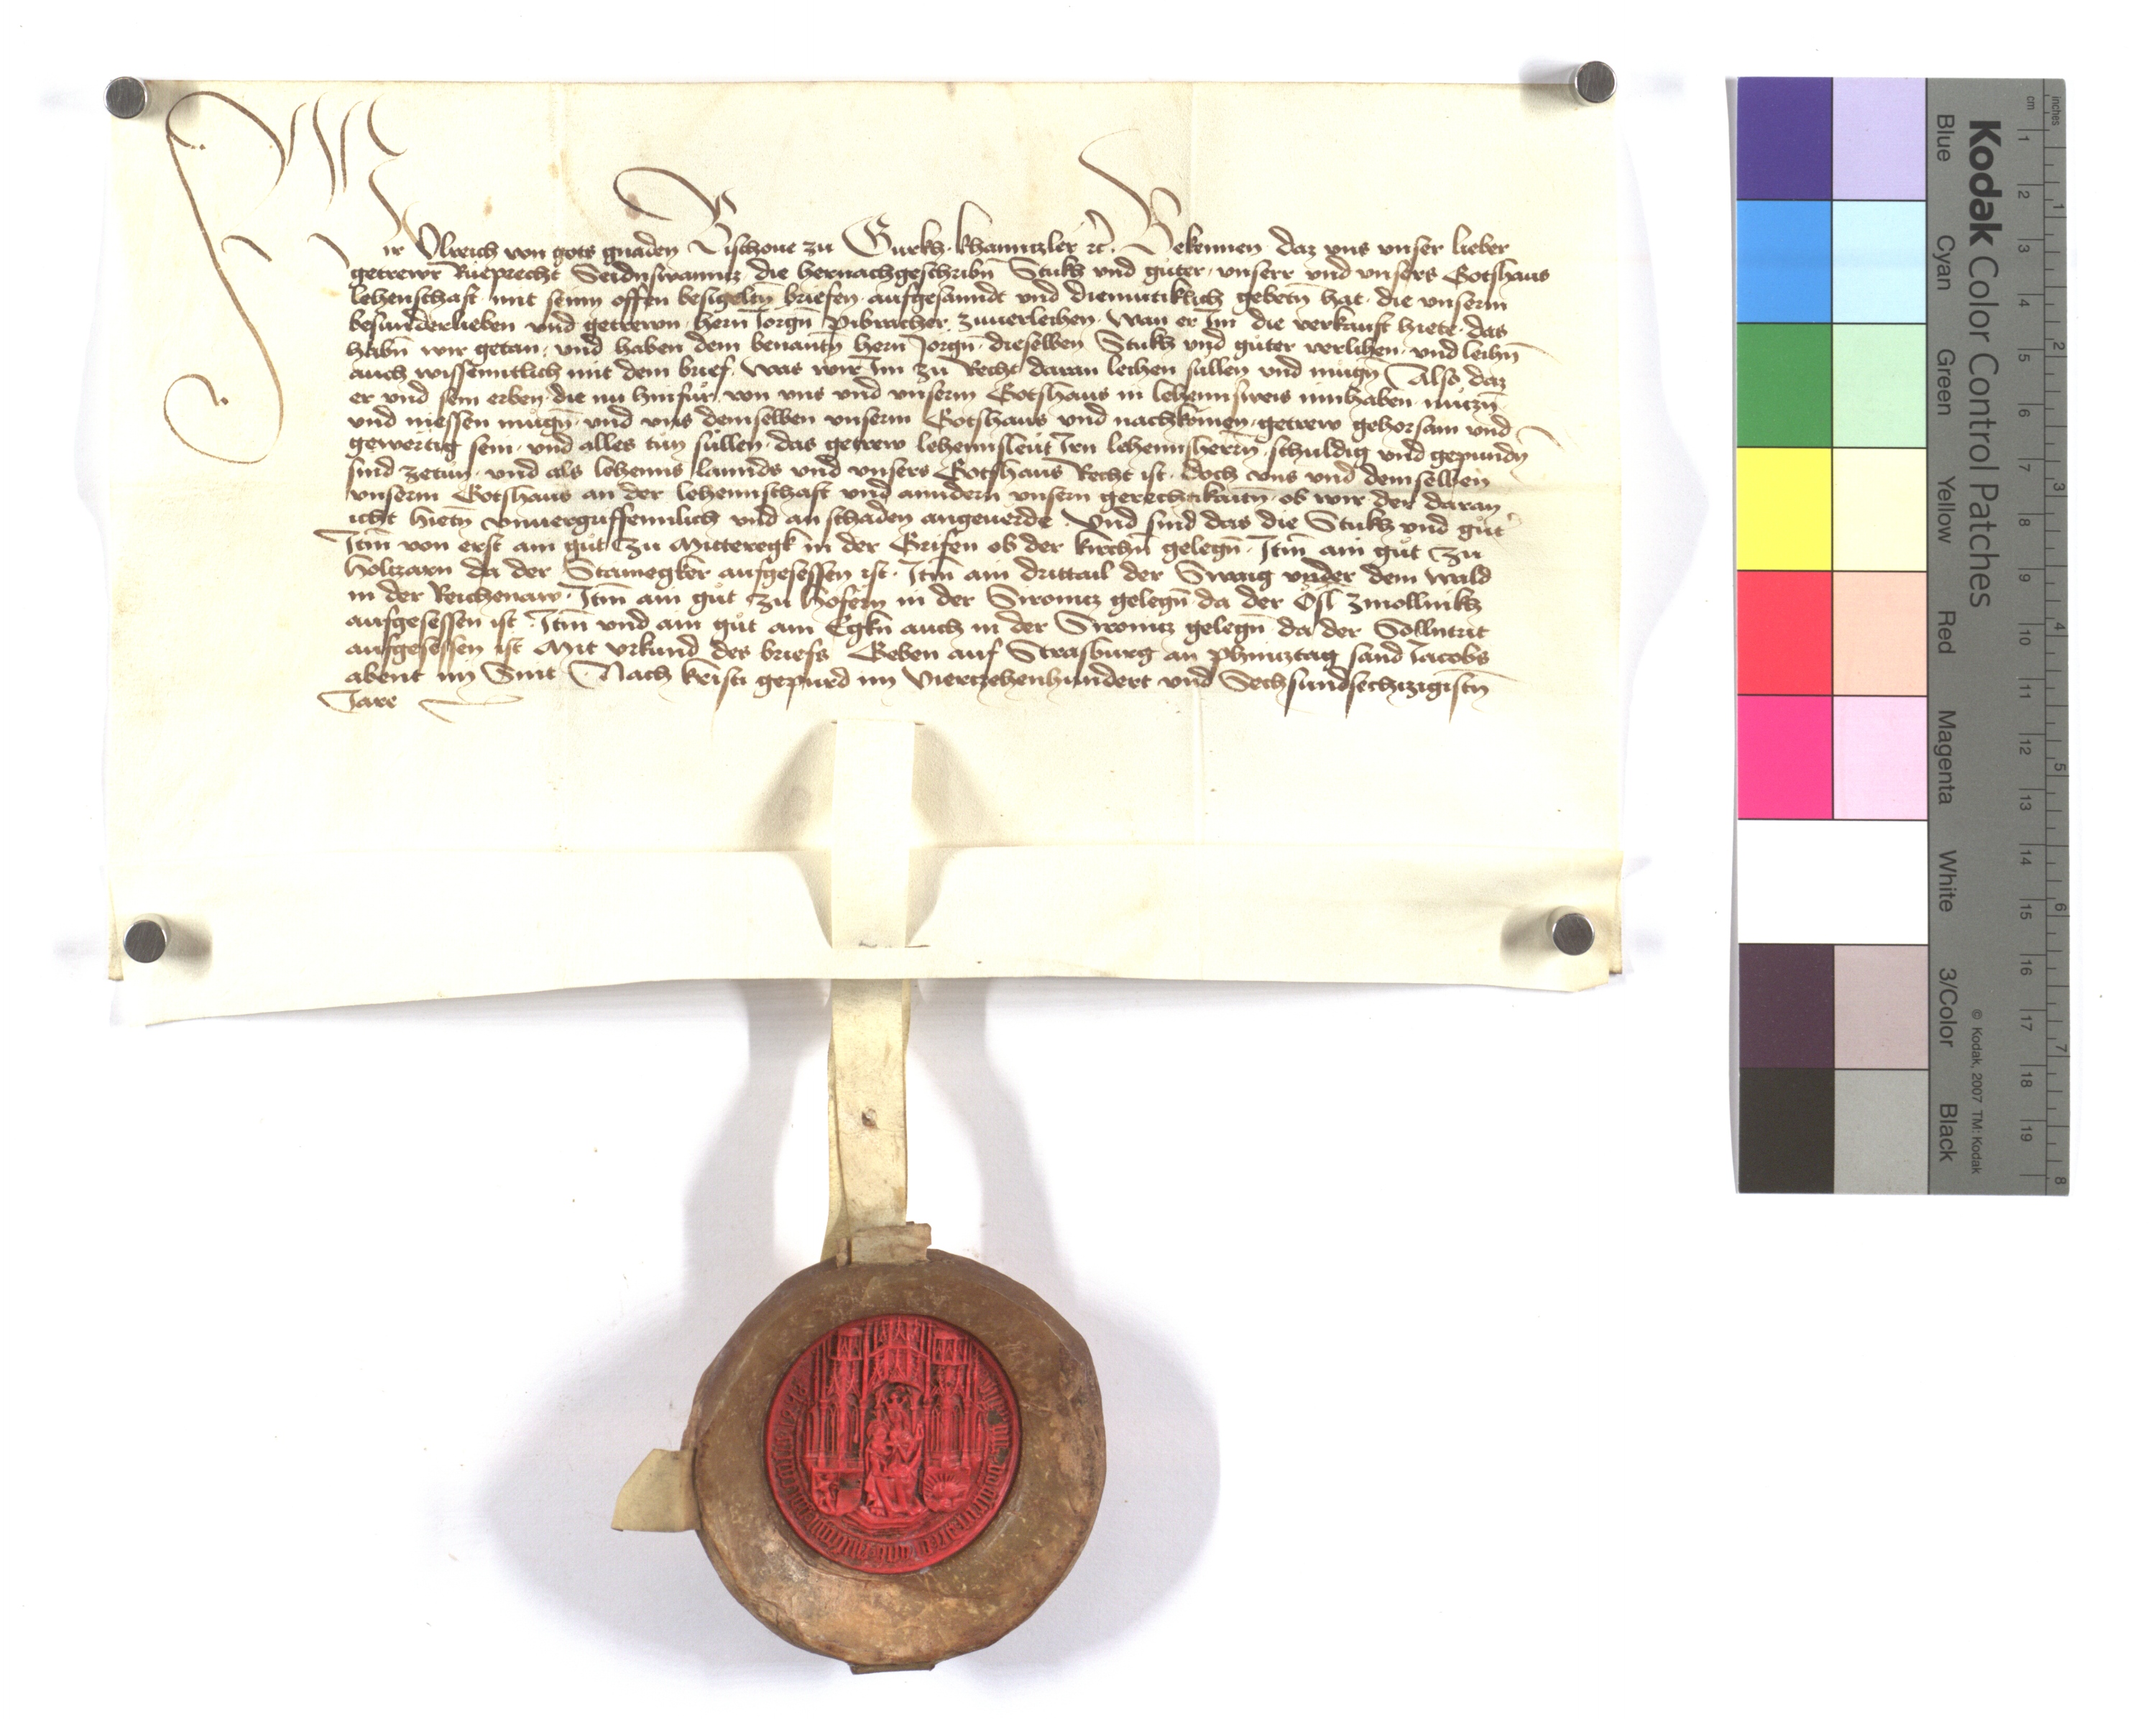 Wir Ulreich von gots gnaden Bischoue zu Gurkh · khanntzler etc. Bekennen daz uns unser lieber
getrewr Rueprecht Seidnswanntz die hernachgeschribn̄ Stukh und gu̇ter · unserr und unsers Gotshaus
lehenschaft · mit seinn offen besigeltn̄ briefen · aufgesanndt und diemutiklich gebetn̄ hat · die unserm
besunderlieben und getrewn · hern Jorgn̄ Pibriacher zuuerleihen · Wan er Im die verkauft hiete · das
habn̄ wir getan · und haben dem benantn̄ hern Jorgn̄ · dieselben Stukh und gu̇ter verlihen · und leihn̄
auch wissenntlich mit dem brief · Was wir Im zu Recht daran leihen sullen und mugn̄ Also daz
er und sein erben · die nu hinfu̇r · von uns und unserm Gotshaus in lehennsweis innhaben · nutzn̄
und niessen mugn̄ · und uns demselben unserm Gotshaus und nachkomen · getrew gehorsam und
gewertig sein · und alles tun sullen · das getrew lehennslewt Irn lehennsherrn̄ · schuldig und gepundn̄
sind zetun · und als lehenns lannds und unsers Gotshaus Recht ist · doch uns und demselben
unserm Gotshaus an der lehennschaft und anndern unsern gerechtikaitn̄ · ob wir der daran
icht hietn̄ unuergriffennlich und an schaden angeuerde · Und sind das die Stukh und gu̇t
Item von erst ain gu̇t zu Mitteregk in der Grifen ob der kirchn̄ gelegn̄ · Item ain gu̇t zu
Holtzarn da der Stainegker aufgesessen ist · Item ain drittail der Swaig under dem wald
in der Reichenaw · Item ain gu̇t zu Hofern in der Sironitz gelegn̄ da der Ösl Zmollnikh
aufgesessen ist · Item und ain gu̇t am Egkn̄ auch in der Sironitz gelegn̄ da der Sollntrit
aufgesessen ist Mit urkund des briefs Geben auf Strasburg an Phintztag sand Jacobs
abent im Snit Nach kristi gepurd im Viertzehenhundert und Sechsundsechtzigistn̄
Jare
Kodak Color Control Patches
Blue Cyan Green Yellow Red Magenta White 3/Color Black
© Kodak, 2007 TM: Kodak
cm 1 2 3 4 5 6 7 8 9 10 11 12 13 14 15 16 17 18 19
inches 1 2 3 4 5 6 7 8